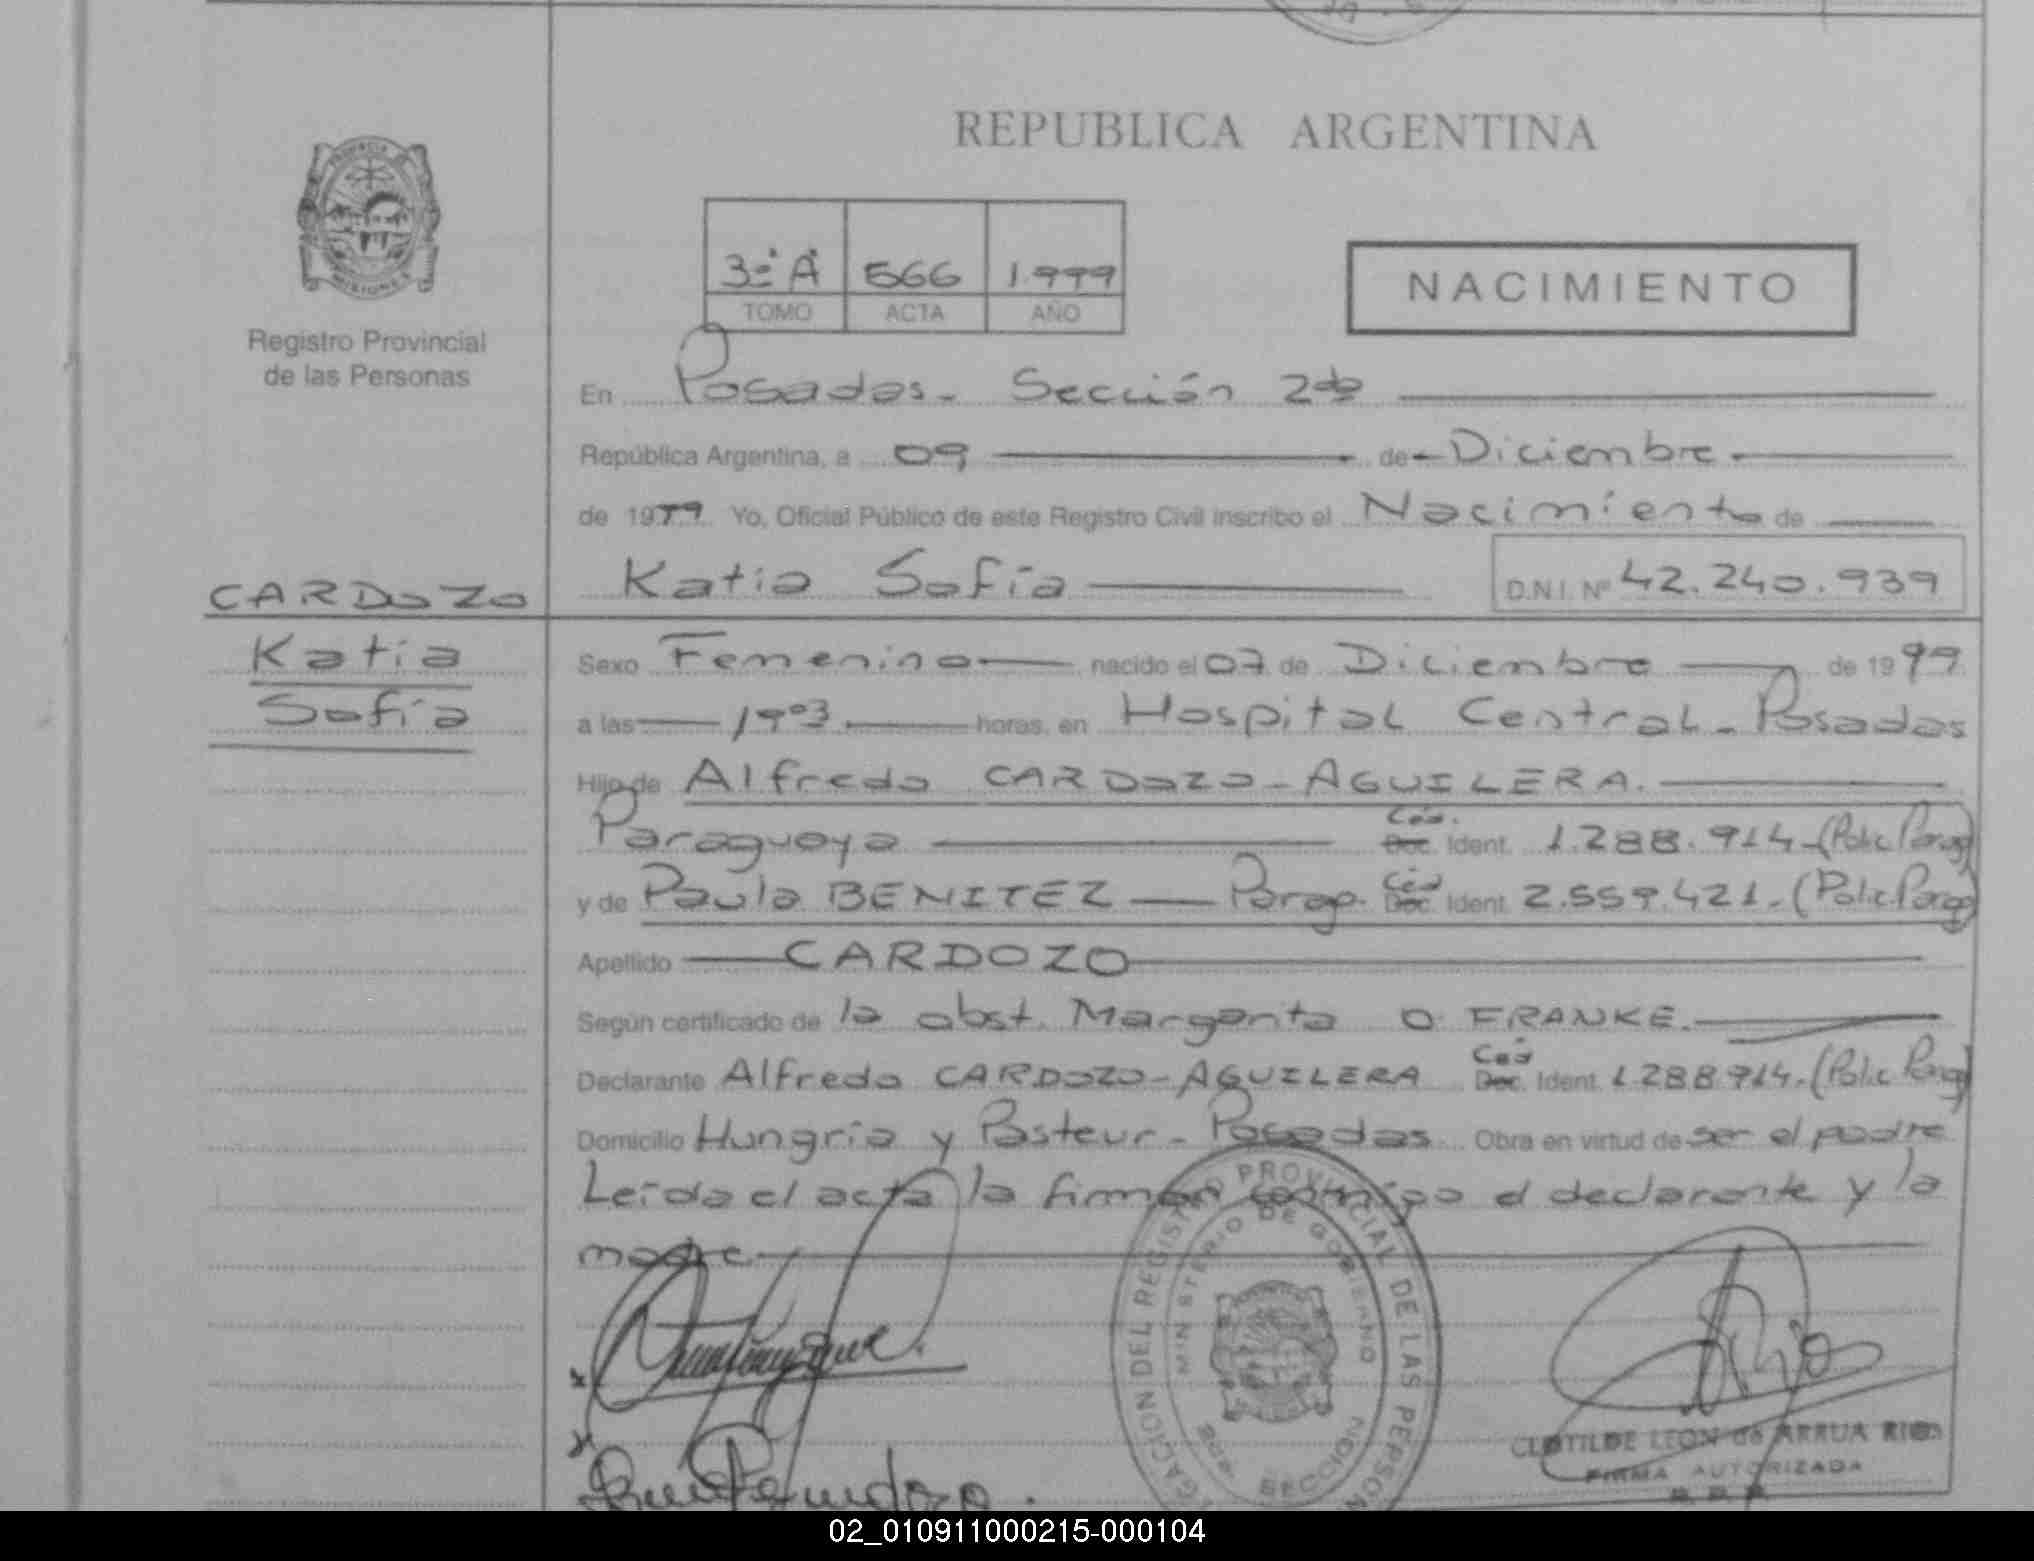 REPUBLICA ARGENTINA
PROVINCIA DE
MISIONES
Registro Provincial
de las Personas
3º A 566 1.999
TOMO ACTA AÑO
NACIMIENTO
En Posadas - Sección 2da
República Argentina, a 09 de Diciembre
de 1999 Yo, Oficial Público de este Registro Civil inscribo el Nacimiento de
Katia Sofía D.N.I. Nº 42.240.939
CARDOZO
Katia
Sofía
Sexo Femenino nacido el 07 de Diciembre de 1999
a las 19º3 horas, en Hospital Central - Posadas
Hijo de Alfredo CARDOZO - AGUILERA.
Paraguaya Céd. Doc. Ident. 1.288.914 - (Polic. Parag)
y de Paula BENITEZ — Parag. Céd Doc. Ident. 2.559.421. (Polic. Parag)
Apellido CARDOZO
Según certificado de la obst. Margarita O FRANKE.
Declarante Alfredo CARDOZO - AGUILERA Céd Doc. Ident. 1.288.914. (Polic Parag)
Domicilio Hungría y Pasteur - Posadas Obra en virtud de ser el padre
Leída el acta la firman conmigo el declarante y la
madre.
DELEGACION DEL REGISTRO PROVINCIAL DE LAS PERSONAS
MINISTERIO DE GOBIERNO
SECCION
CLOTILDE LEON de ARRUA RIOS
FIRMA AUTORIZADA
R. P. P.
02_010911000215-000104